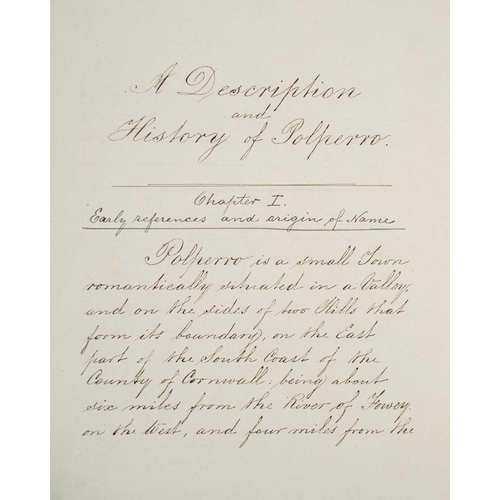 A Description
and
History of Polperro.
Chapter I.
Early references and origin of Name
Polperro is a small Town
romantically situated in a Valley,
and on the sides of two Hills that
form its boundary, on the East
part of the South Coast of the
County of Cornwall: being about
six miles from the River of Fowey
on the West, and four miles from the